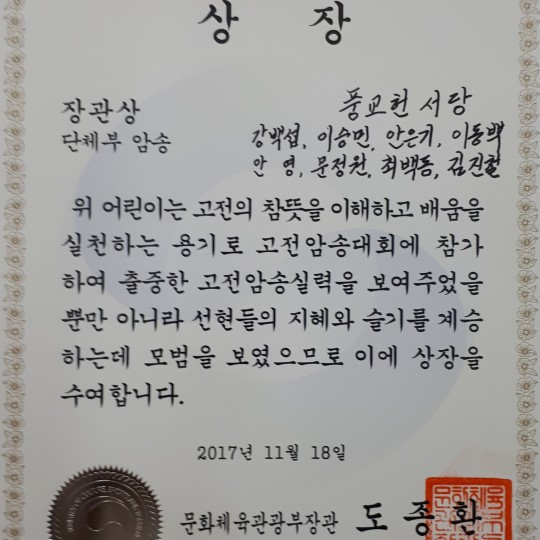 상 장
장관상
풍교헌 서당
단체부 암송
강백섭, 이승민, 안은기, 이동백
안 영, 문정원, 최백동, 김진철
위 어린이는 고전의 참뜻을 이해하고 배움을
실천하는 용기로 고전암송대회에 참가
하여 출중한 고전암송실력을 보여주었을
뿐만 아니라 선현들의 지혜와 슬기를 계승
하는데 모범을 보였으므로 이에 상장을
수여합니다.
2017년 11월 18일
문화체육관광부장관 도 종 환